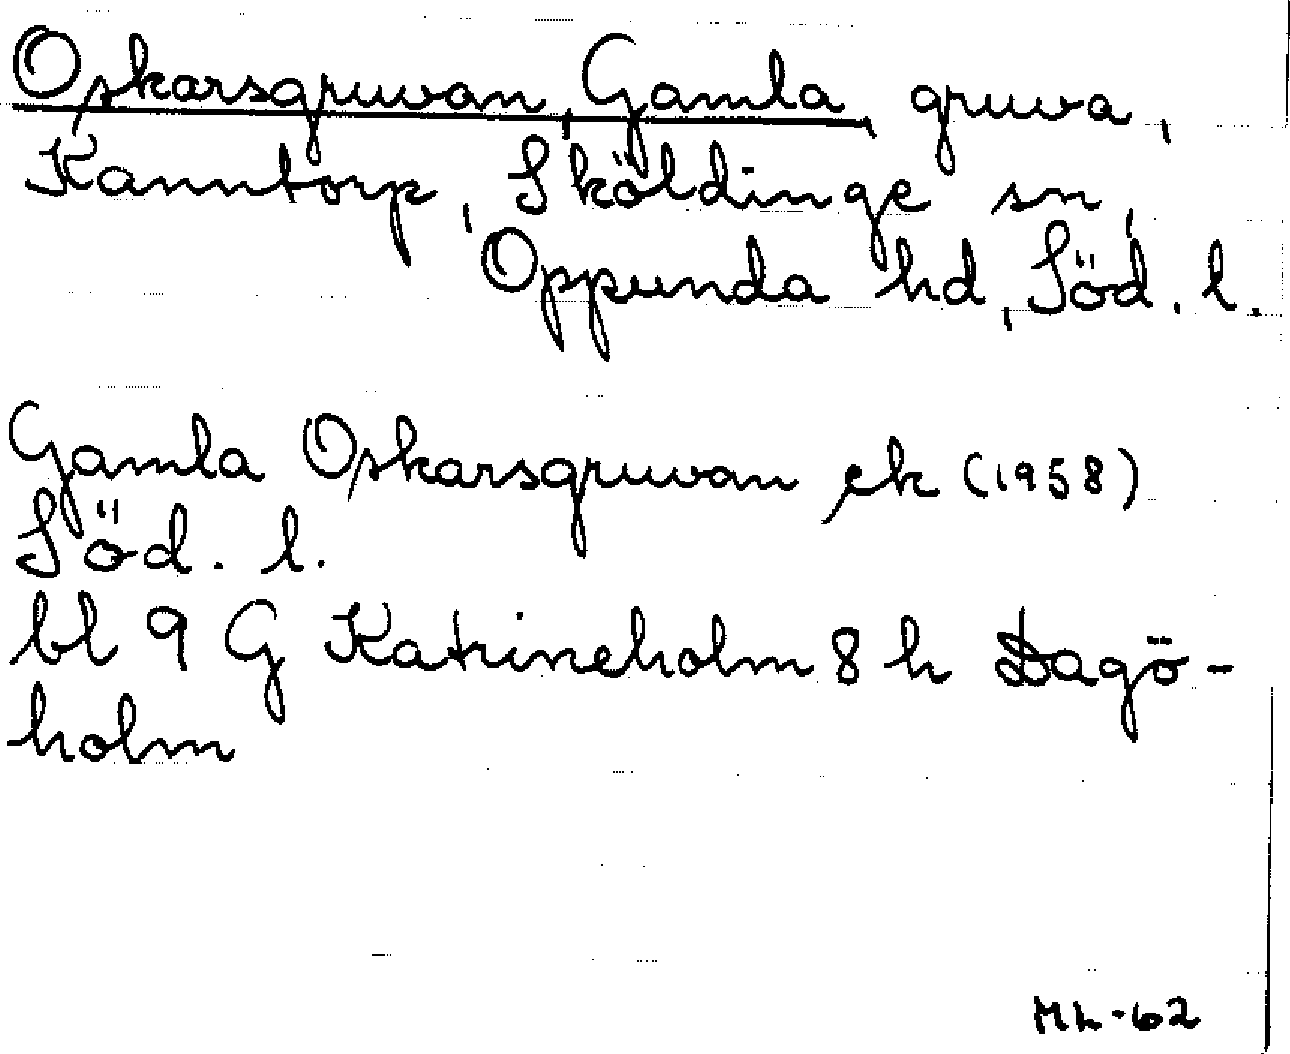 Oskarsgruvan, Gamla, gruva,
Kanntorp, Sköldinge sn,
Oppunda hd, Söd. l.
Gamla Oskarsgruvan ek (1958)
Söd. l.
bl 9 G Katrineholm 8 h Dagö-
holm
ML-62